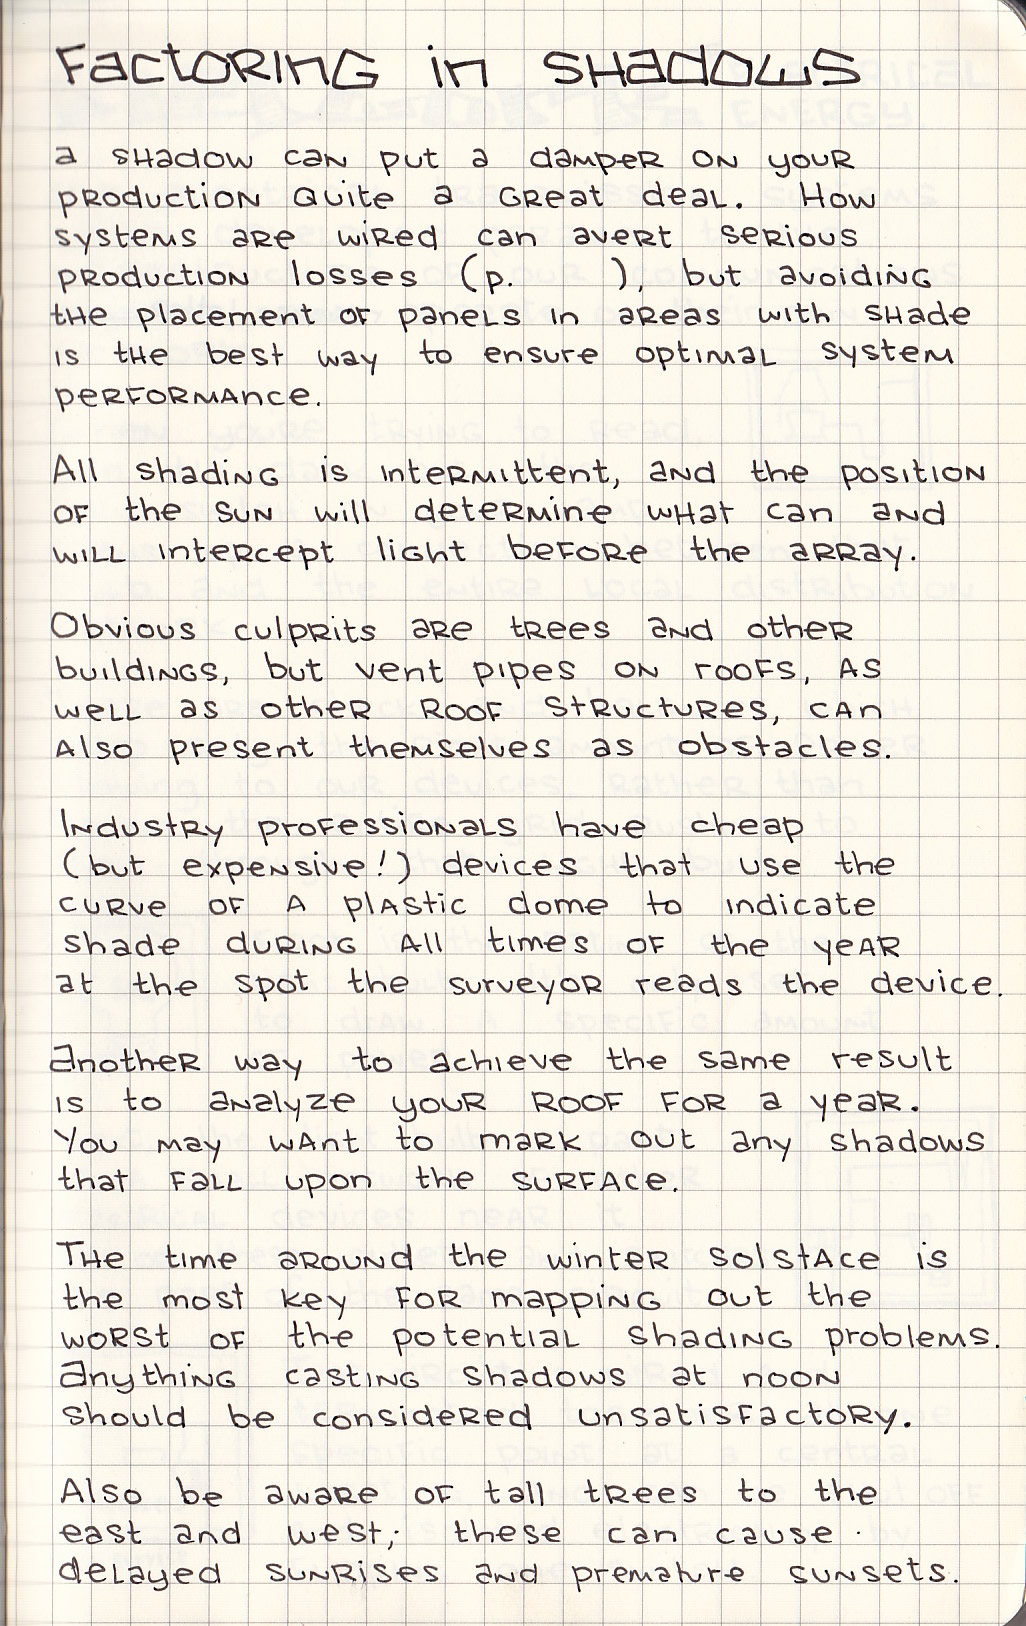 Factoring in Shadows
a shadow can put a damper on your
production quite a great deal. How
systems are wired can avert serious
production losses (p.      ), but avoiding
the placement of panels in areas with shade
is the best way to ensure optimal system
performance.
All shading is intermittent, and the position
of the sun will determine what can and
will intercept light before the array.
Obvious culprits are trees and other
buildings, but vent pipes on roofs, as
well as other roof structures, can
also present themselves as obstacles.
Industry professionals have cheap
(but expensive!) devices that use the
curve of a plastic dome to indicate
shade during all times of the year
at the spot the surveyor reads the device.
Another way to achieve the same result
is to analyze your roof for a year.
You may want to mark out any shadows
that fall upon the surface.
The time around the winter solstace is
the most key for mapping out the
worst of the potential shading problems.
Anything casting shadows at noon
should be considered unsatisfactory.
Also be aware of tall trees to the
east and west; these can cause
delayed sunrises and premature sunsets.